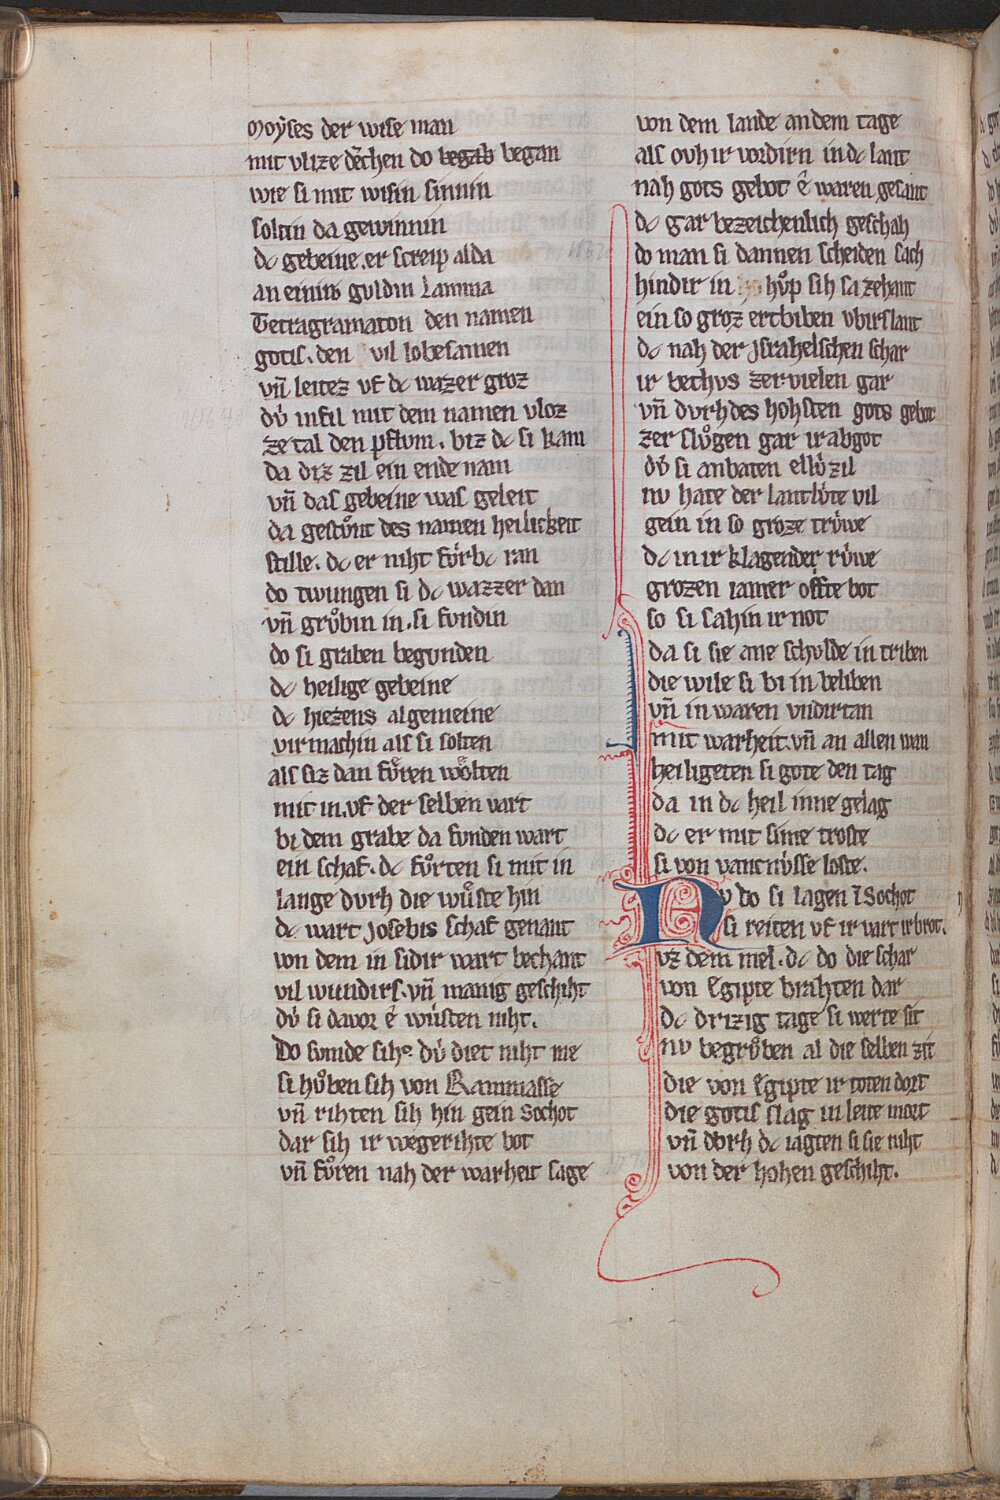 Moẏses der wise man
mit vlize dechen do begab began
wie si mit wisin sinnin
soltin da gewinnin
dc gebeine. er screip alda
an einim guldin Lamina
Tetragramaton den namen
gotis. den vil lobesamen
vn̄ leitez vf dc wazer groz
dv́ infil mit dem namen vloz
ze tal den pflvm. biz dc si kam
da diz zil ein ende nam
vn̄ das gebeine was geleit
da gestv̊nt des namen heilickeit
stille. dc er niht fv́rbc ran
do twungen si dc wazzer dan
vn̄ grv̊bin in. si fvndin
do si graben begvnden
dc heilige gebeine
dc hiezens algemeine
virmachin als si solten
als siz dan fv̊ren wolten
mit in. vf der selben vart
bi dem grabe da fvnden wart
ein schaf. dc fv̊rten si mit in
lange dvrh die wv̊ste hin
dc wart Josebis schaf genant
von dem in sidir wart bechant
vil wundirs. vn̄ manig geschiht
dv́ si davor e wv́sten niht.
Do svmde sihc dv́ diet niht me
si hv̊ben sih von Rammasse
vn̄ rihten sih hin gein Sochot
dar sih ir wegerihte bot
vn̄ fv̊ren nah der warheit sage
von dem lande an dem tage
als ovh ir vordirn in dc lant
nah gots gebot ê waren gesant
dc gar bezeichenlich geschah
do man si dannen scheiden sach
hindir in hv̊p sih sa zehant
ein so groz ertbiben vbirs lant
dc nah der Jsrahelschen schar
ir bethvs zervielen gar
vn̄ dvrh des hohsten gots gebot
zer slv̊gen gar ir abgot
dv́ si anbaten ellv́ zil
nv hate der lantlv́te vil
gein in so groze trv́we
dc in ir klagender rv́we
grozen iamer offte bot
so si sahin ir not
da si sie ane schvlde in triben
die wile si bi in beliben
vn̄ in waren vndirtan
mit warheit. vn̄ an allen wan
heiligeten si gote den tag
da in dc heil inne gelag
dc er mit sime troste
si von vancnv́sse loste.
Nv do si lagen ī Sochot
si reiten vf ir vart ir brot.
vz dem mel. dc do die schar
von Egipte brahten dar
dc drizig tage si werte sit
nv begrv̊ben al die selben zit
die von Egipte ir toten dort
die gotis slag in leite mort
vn̄ dvrh dc iagten si sie niht
von der hohen geschiht.